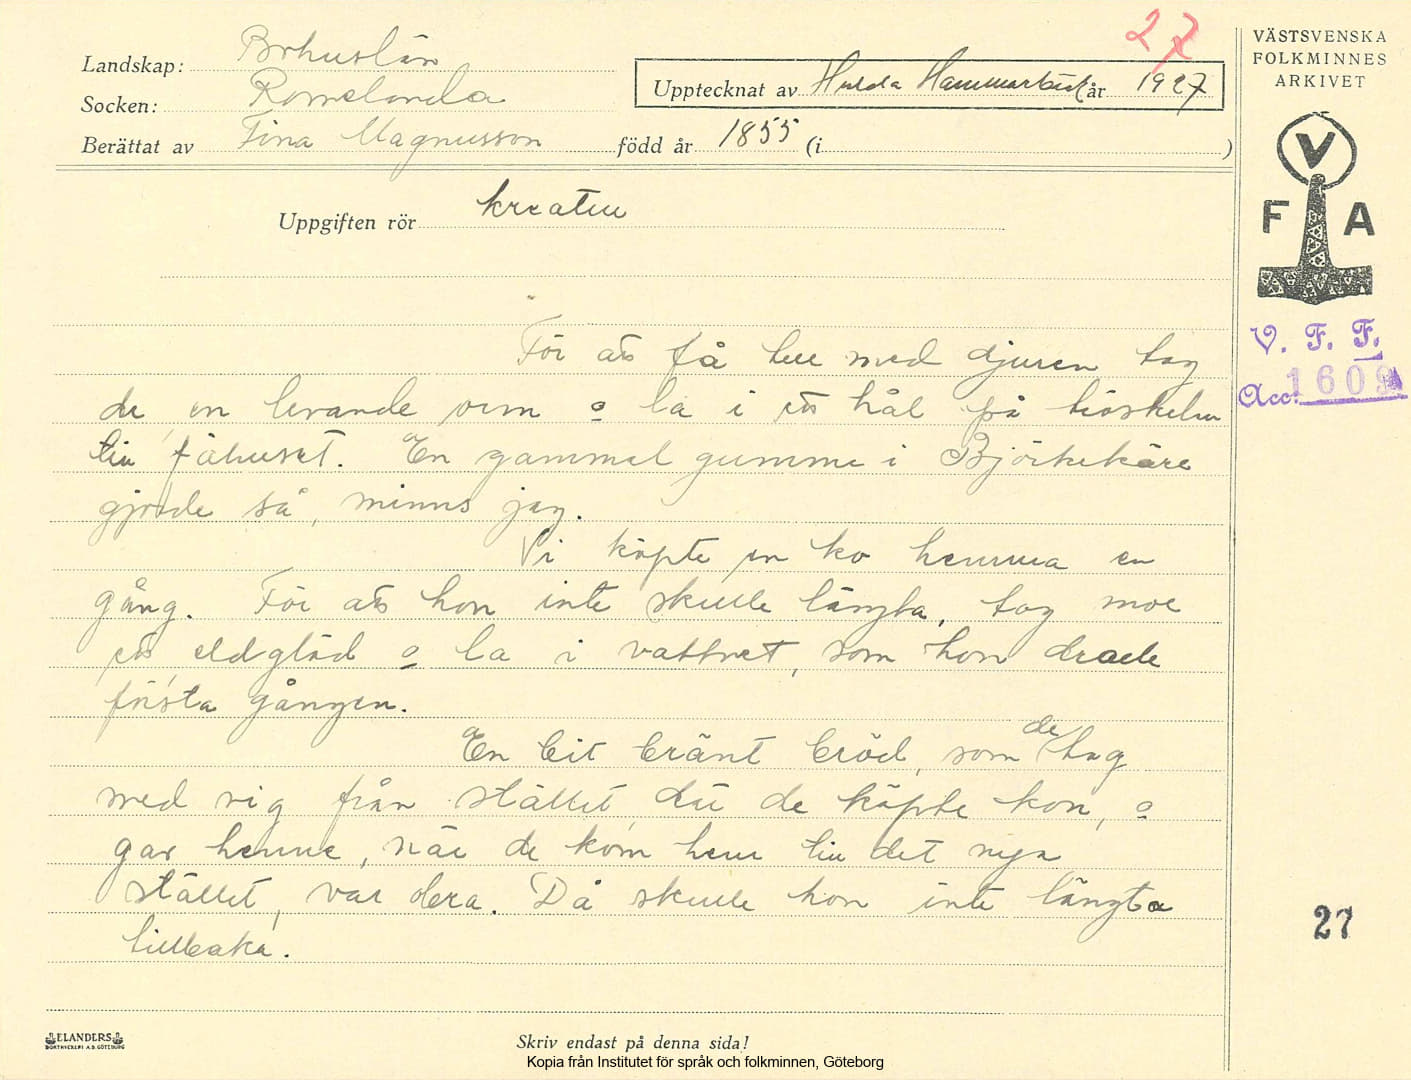 27
VÄSTSVENSKA
FOLKMINNES
ARKIVET
Landskap: Bohuslän
Socken: Romelanda
Upptecknat av Hulda Hammarbäck år 1927
Berättat av Tina Magnusson född år 1855 (i )
Uppgiften rör kreatur
V
F A
V. F. F.
Acc. 1609
För att få tur med djuren tog
de en levande orm o la i ett hål på tröskeln
till fähuset. En gammal gumma i Björkekärr
gjorde så, minns jag.
Vi köpte en ko hemma en
gång. För att hon inte skulle längta, tog mor
ett eldglöd o la i vattnet, som hon drack
första gången.
En bit bränt bröd, som de tog
med sig från stället, där de köpte kon, o
gav henne, när de kom hem till det nya
stället, var bra. Då skulle hon inte längta
tillbaka.
27
ELANDERS
BOKTRYCKERI A.B. GÖTEBORG
Skriv endast på denna sida!
Kopia från Institutet för språk och folkminnen, Göteborg